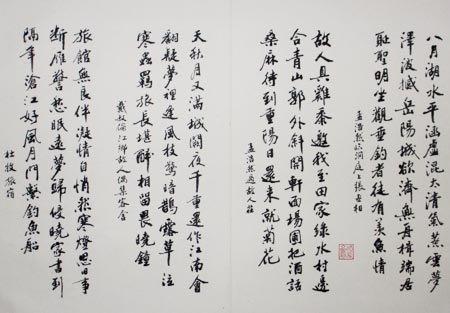 八月湖水平涵虛混太清氣蒸雲夢
澤波撼岳陽城欲濟無舟楫端居
恥聖明坐觀垂釣者徒有羨魚情
孟浩然臨洞庭上張丞相
故人具雞黍邀我至田家綠水村邊
合青山郭外斜開軒面場圃把酒話
桑麻待到重陽日還來就菊花
孟浩然過故人莊
天秋月又滿城闕夜千重還作江南會
翻疑夢裡逢風枝驚暗鵲露草泣
寒蟲羈旅長堪醉相留畏曉鐘
戴叔倫江鄉故人偶集客舍
旅館無良伴凝情自悄然寒燈思舊事
斷雁警愁眠遠夢歸侵曉家書到
隔年滄江好風月門繫釣魚船
杜牧旅宿